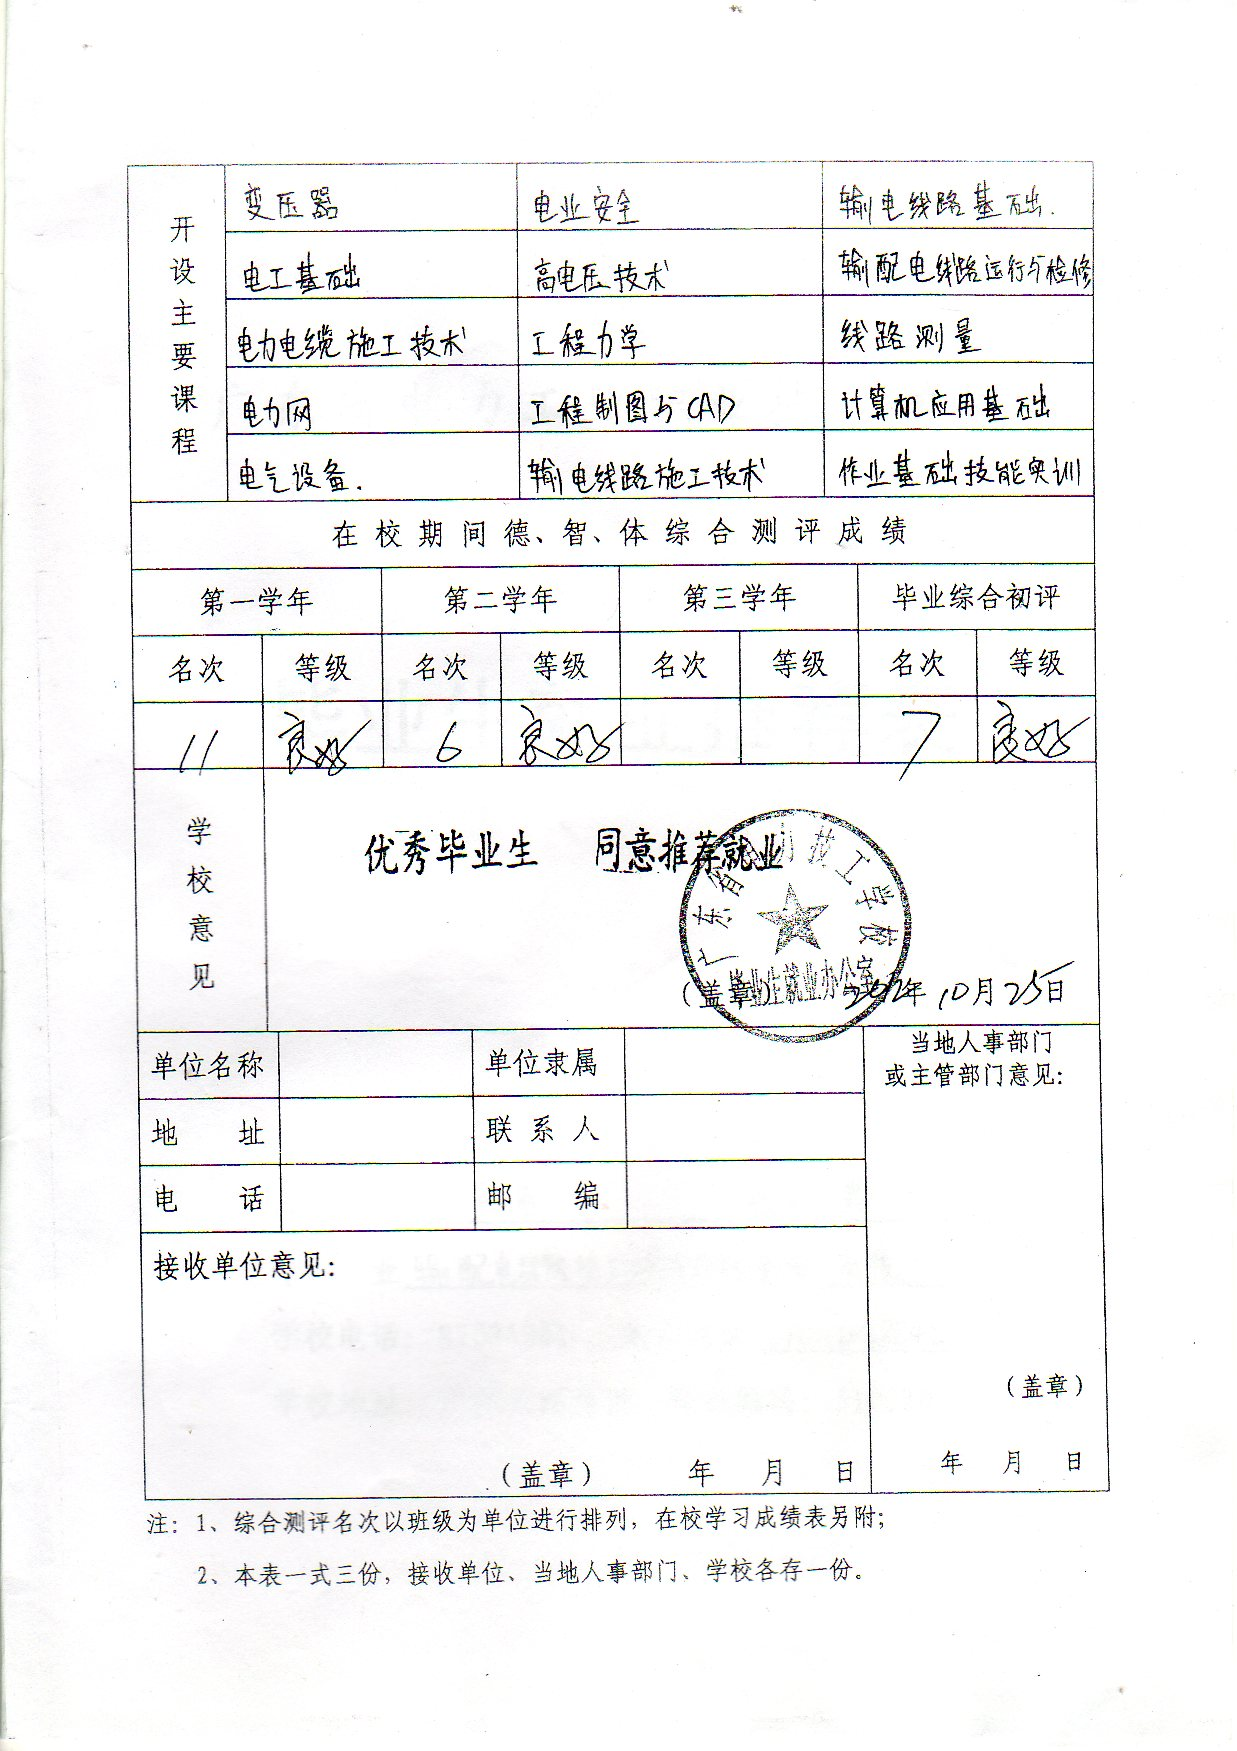 开设主要课程
变压器 电业安全 输电线路基础.
电工基础 高电压技术 输配电线路运行与检修
电力电缆施工技术 工程力学 线路测量
电力网 工程制图与CAD 计算机应用基础
电气设备. 输电线路施工技术 作业基础技能实训
在校期间德、智、体综合测评成绩
第一学年 第二学年 第三学年 毕业综合初评
名次 等级 名次 等级 名次 等级 名次 等级
11 良好 6 良好 7 良好
学校意见
优秀毕业生 同意推荐就业
广东省电力技工学校
毕业生就业办公室
（盖章） 2012年10月25日
单位名称 单位隶属
地 址 联系人
电 话 邮 编
当地人事部门
或主管部门意见：
（盖章）
年 月 日
接收单位意见：
（盖章） 年 月 日
注：1、综合测评名次以班级为单位进行排列，在校学习成绩表另附；
2、本表一式三份，接收单位、当地人事部门、学校各存一份。